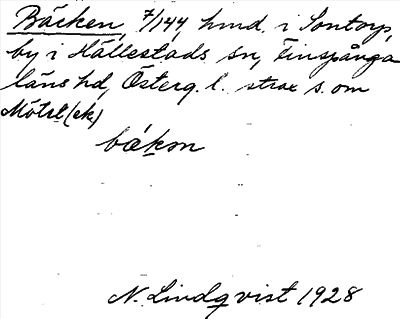 Bäcken, 7/144, hmd. i Sontorp,
by i Hällestads sn, Finspånga
läns hd, Österg. l. strax s. om
Mötet (ek)
bækən
N. Lindqvist 1928